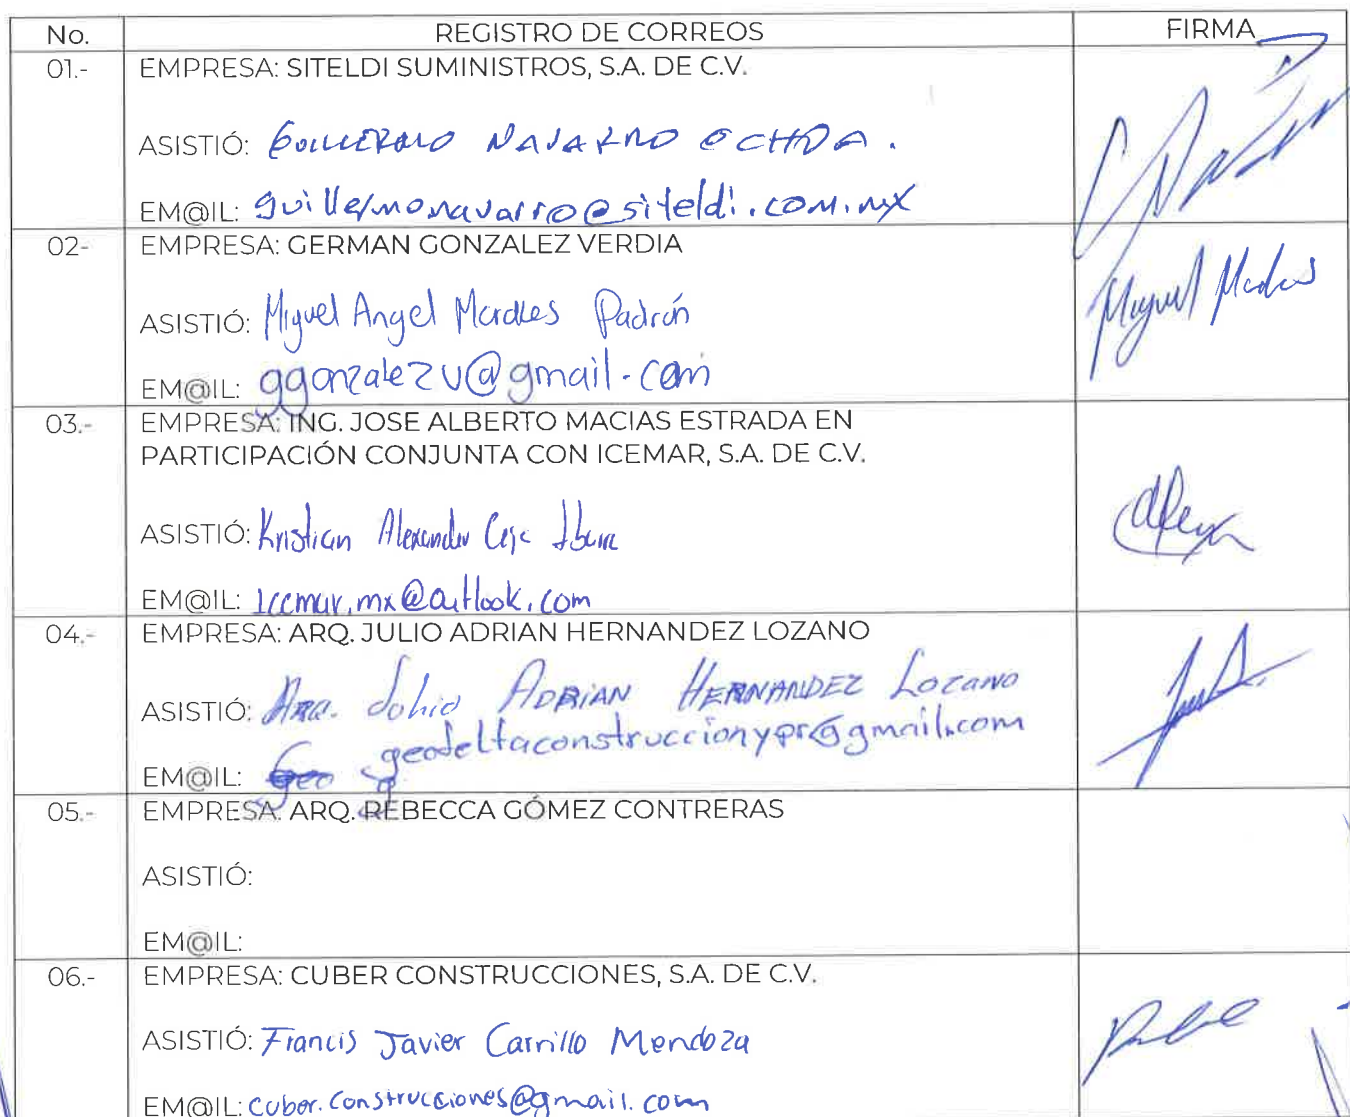 No. REGISTRO DE CORREOS FIRMA
01.- EMPRESA: SITELDI SUMINISTROS, S.A. DE C.V.
ASISTIÓ: GUILLERMO NAVARRO OCHOA.
EM@IL: guillermonavarro@siteldi.com.mx
02- EMPRESA: GERMAN GONZALEZ VERDIA
ASISTIÓ: Miguel Angel Padrón
EM@IL: ggonzalezv@gmail.com
03.- EMPRESA: ING. JOSE ALBERTO MACIAS ESTRADA EN
PARTICIPACIÓN CONJUNTA CON ICEMAR, S.A. DE C.V.
ASISTIÓ: Kristian Alexander Ibarra
EM@IL: icemar.mx@outlook.com
04.- EMPRESA: ARQ. JULIO ADRIAN HERNANDEZ LOZANO
ASISTIÓ: ARQ. Julio ADRIAN HERNANDEZ Lozano
geodeltaconstruccionypr@gmail.com
EM@IL:
05.- EMPRESA: ARQ. REBECCA GÓMEZ CONTRERAS
ASISTIÓ:
EM@IL:
06.- EMPRESA: CUBER CONSTRUCCIONES, S.A. DE C.V.
ASISTIÓ: Francis Javier Carrillo Mendoza
EM@IL: cuber.construcciones@gmail.com